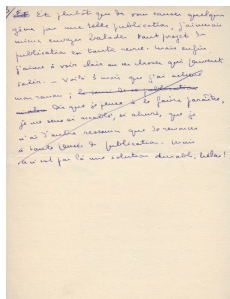 Et plutôt que de vous causer quelque
gêne par une telle publication, j'aimerais
mieux envoyer balader tout projet de
publication en toute revue. Mais enfin
j'aime à voir clair au choses qui peuvent
salir. — Voilà 3 mois que j'ai achevé
mon roman ;
Dès que je pense à le faire paraître,
je me sens si accablé, si ahuri, que je
n'ai d'autre ressource que de renoncer
à toute pensée de publication. Mais
ce n'est pas là une solution durable, hélas !